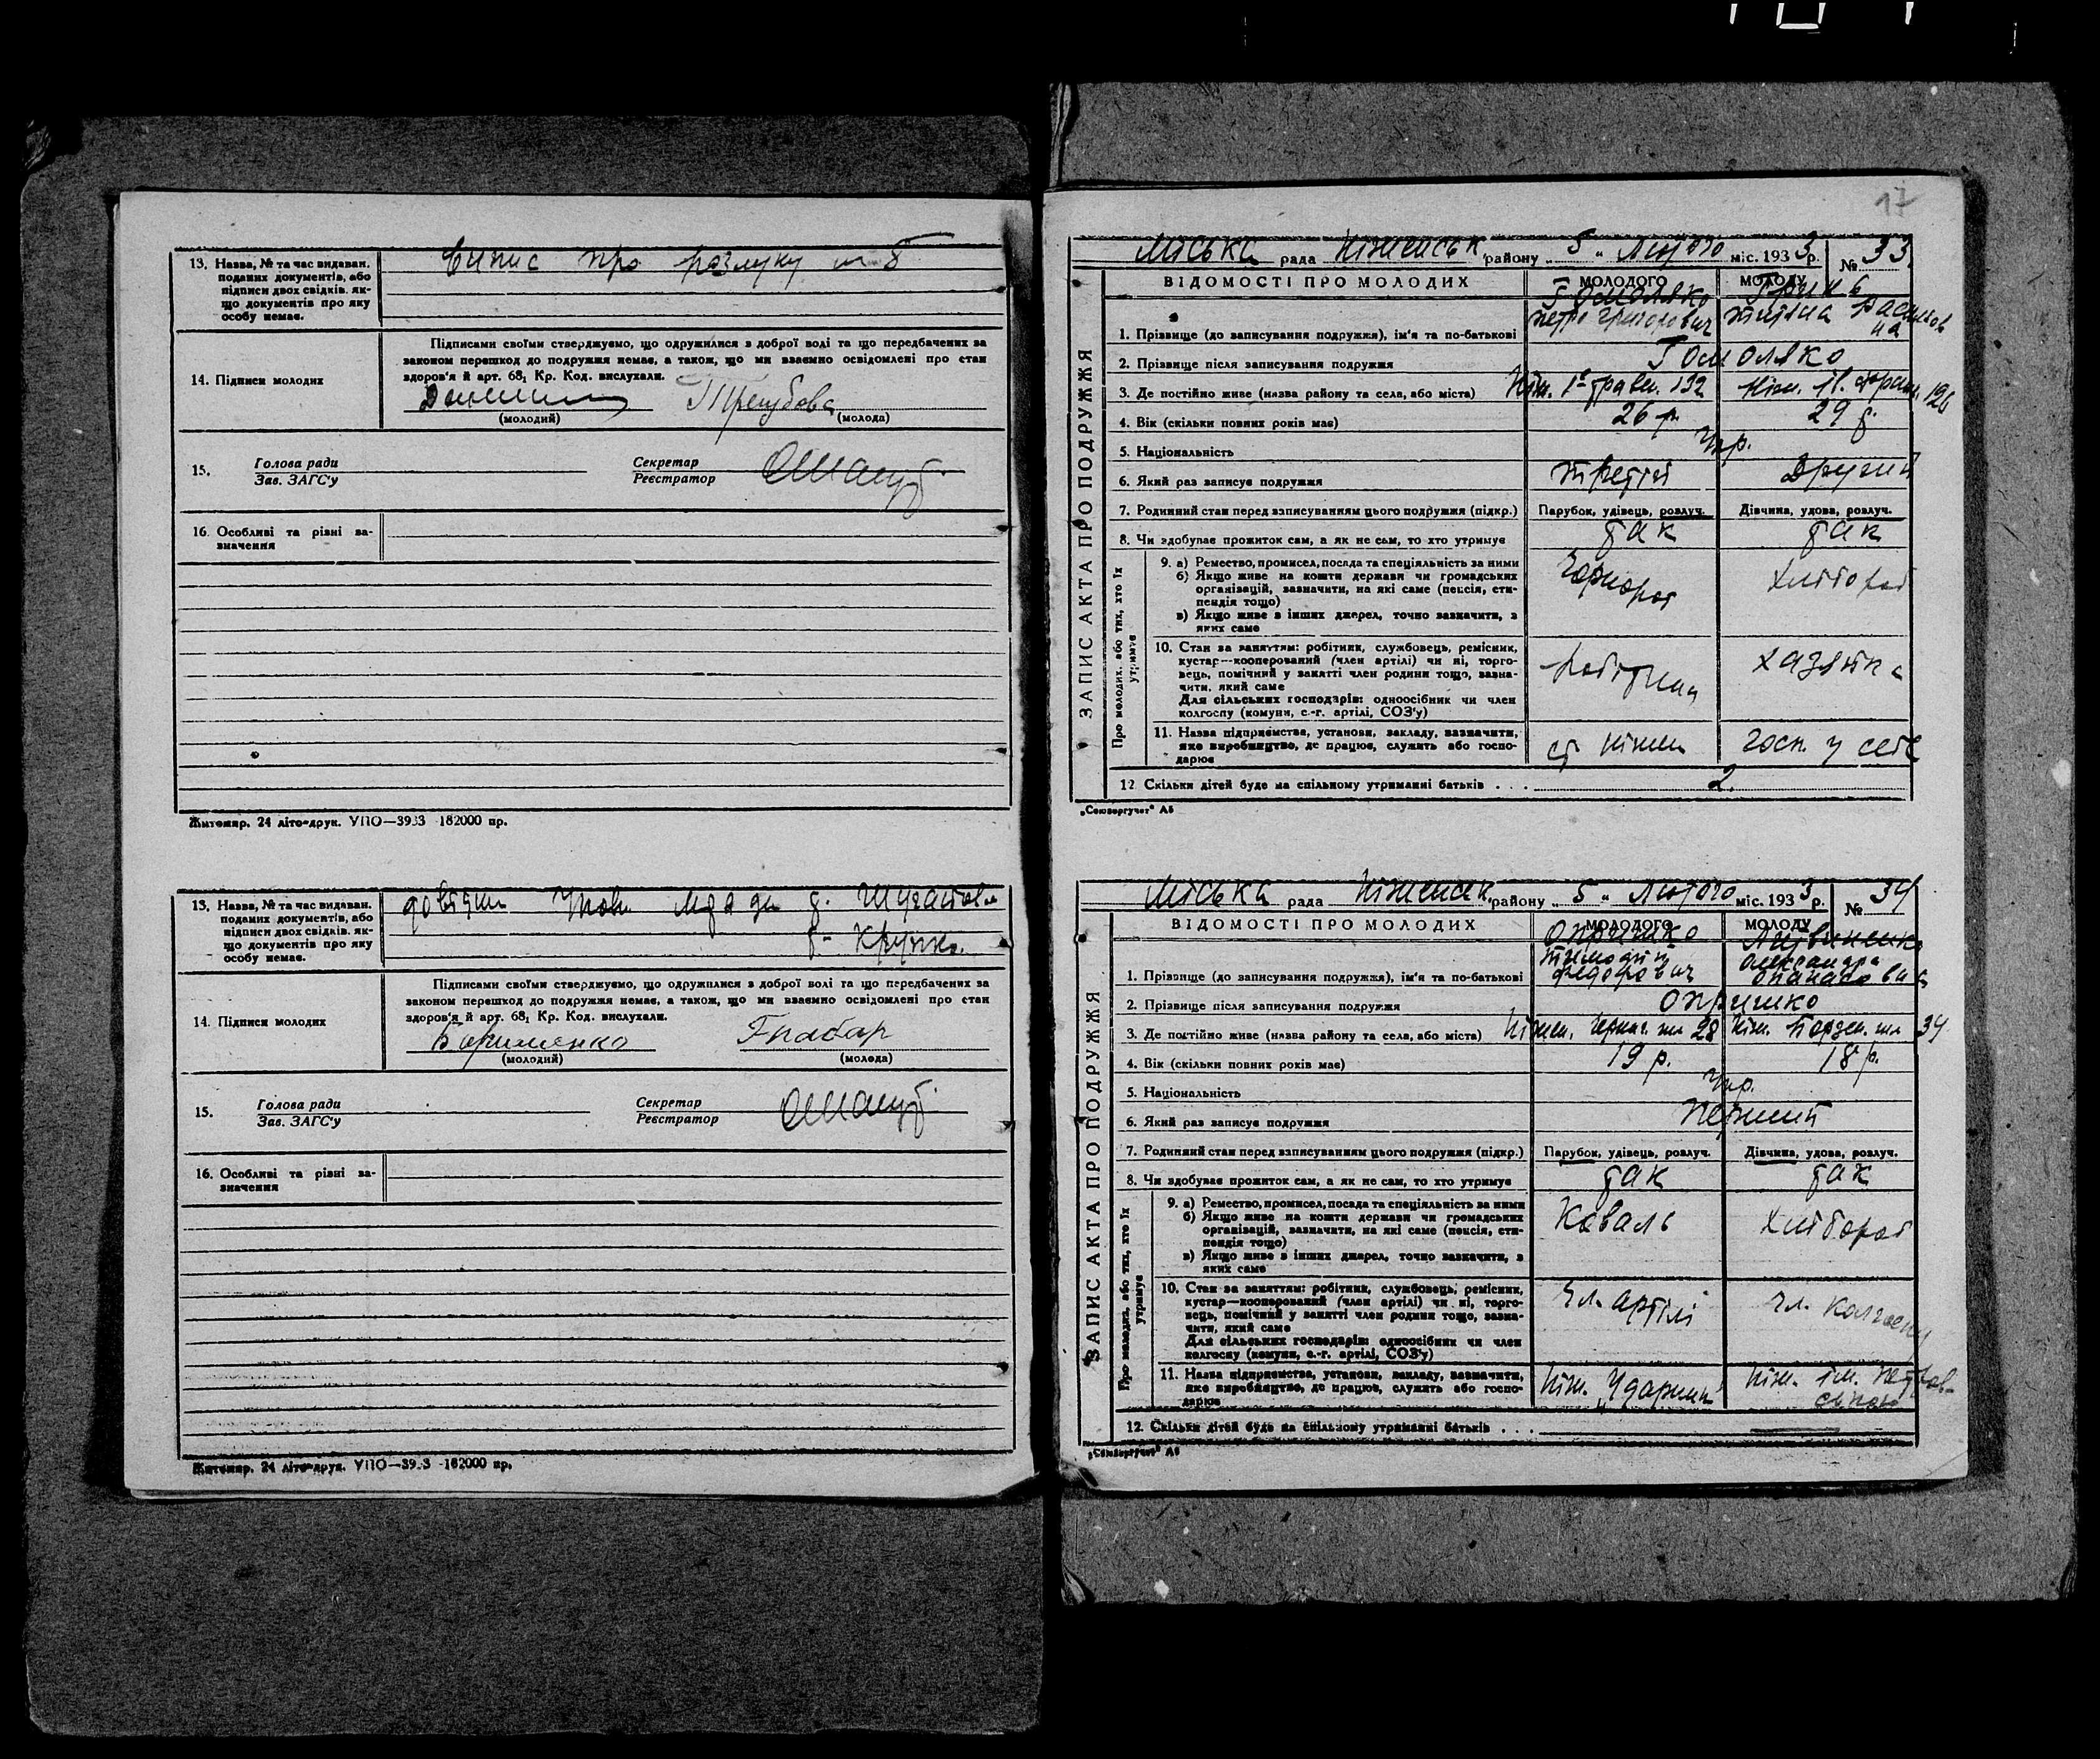 13. Назва, № та час видаван. поданих документів, або підписи двох свідків, якщо документів про яку особу немає.
Випис про розлуку № 8
Підписами своїми стверджуємо, що одружилися з доброї волі та що передбачених за
законом перешкод до подружжя немає, а також, що ми взаємно освідомлені про стан
здоров'я й арт. 68₁ Кр. Код. вислухали.
14. Підписи молодих
Трегубова
(молодий) (молода)
15. Голова ради Секретар
Зав. ЗАГС'у Реєстратор
16. Особливі та різні зазначення
Житомир. 24 літо-друк. УПО—3933 182000 пр.
13. Назва, № та час видаван. поданих документів, або підписи двох свідків, якщо документів про яку особу немає.
довідки
14. Підписи молодих
Підписами своїми стверджуємо, що одружилися з доброї волі та що передбачених за
законом перешкод до подружжя немає, а також, що ми взаємно освідомлені про стан
здоров'я й арт. 68₁ Кр. Код. вислухали.
(молодий) (молода)
15. Голова ради Секретар
Зав. ЗАГС'у Реєстратор
16. Особливі та різні зазначення
Житомир. 24 літо-друк. УПО—3933 182000 пр.
17
Міська рада Ніженськ. району „5" Лютого міс. 1933 р. № 33
ЗАПИС АКТА ПРО ПОДРУЖЖЯ
ВІДОМОСТІ ПРО МОЛОДИХ МОЛОДОГО МОЛОДУ
1. Прізвище (до записування подружжя), ім'я та по-батькові Гомоляко Петро Григорович Гринь
2. Прізвище після записування подружжя Гомоляко
3. Де постійно живе (назва району та села, або міста) Ніж. 132
4. Вік (скільки повних років має) 26 р. 29 р.
5. Національність Укр.
6. Який раз записує подружжя третій другий
7. Родинний стан перед записуванням цього подружжя (підкр.) Парубок, удівець, розлуч. Дівчина, удова, розлуч.
8. Чи здобуває прожиток сам, а як не сам, то хто утримує так так
Про молодих, або тих, хто їх утримує
9. а) Ремество, промисел, посада та спеціяльність за ними Чорнороб хлібороб
б) Якщо живе на кошти держави чи громадських
організацій, зазначити, на які саме (пенсія, сти-
пендія тощо)
в) Якщо живе з інших джерел, точно зазначити, з
яких саме
10. Стан за заняттям: робітник, службовець, ремісник,
кустар—кооперований (член артілі) чи ні, торго-
вець, помічний у занятті член родини тощо, зазна-
чити, який саме
Для сільських господарів: одноосібник чи член
колгоспу (комуни, с.-г. артілі, СОЗ'у)
робітник хазяйка
11. Назва підприємства, установи, закладу, зазначити,
яке виробництво, де працює, служить або госпо-
дарює
ст Ніжен госп. у себе
12. Скільки дітей буде на спільному утриманні батьків . . . 2.
„Союзоргучет" А5
Міська рада Ніженськ. району „5" Лютого міс. 1933 р. № 34
ЗАПИС АКТА ПРО ПОДРУЖЖЯ
ВІДОМОСТІ ПРО МОЛОДИХ МОЛОДОГО МОЛОДУ
1. Прізвище (до записування подружжя), ім'я та по-батькові Опришко Тимофій Федорович Литвиненко Олександра Опанасовна
2. Прізвище після записування подружжя Опришко
3. Де постійно живе (назва району та села, або міста) Ніжен. Черніг. шл 28 Ніж. Борзен. шл 34
4. Вік (скільки повних років має) 19 р. 18 р.
5. Національність Укр.
6. Який раз записує подружжя перший
7. Родинний стан перед записуванням цього подружжя (підкр.) Парубок, удівець, розлуч. Дівчина, удова, розлуч.
8. Чи здобуває прожиток сам, а як не сам, то хто утримує так так
Про молодих, або тих, хто їх утримує
9. а) Ремество, промисел, посада та спеціяльність за ними Коваль хлібороб
б) Якщо живе на кошти держави чи громадських
організацій, зазначити, на які саме (пенсія, сти-
пендія тощо)
в) Якщо живе з інших джерел, точно зазначити, з
яких саме
10. Стан за заняттям: робітник, службовець, ремісник,
кустар—кооперований (член артілі) чи ні, торго-
вець, помічний у занятті член родини тощо, зазна-
чити, який саме
Для сільських господарів: одноосібник чи член
колгоспу (комуни, с.-г. артілі, СОЗ'у)
чл. артілі чл. колгоспу
11. Назва підприємства, установи, закладу, зазначити,
яке виробництво, де працює, служить або госпо-
дарює
Ніж. „Ударник" Ніж. ім. Петров-
ського
12. Скільки дітей буде на спільному утриманні батьків . . .
„Союзоргучет" А5